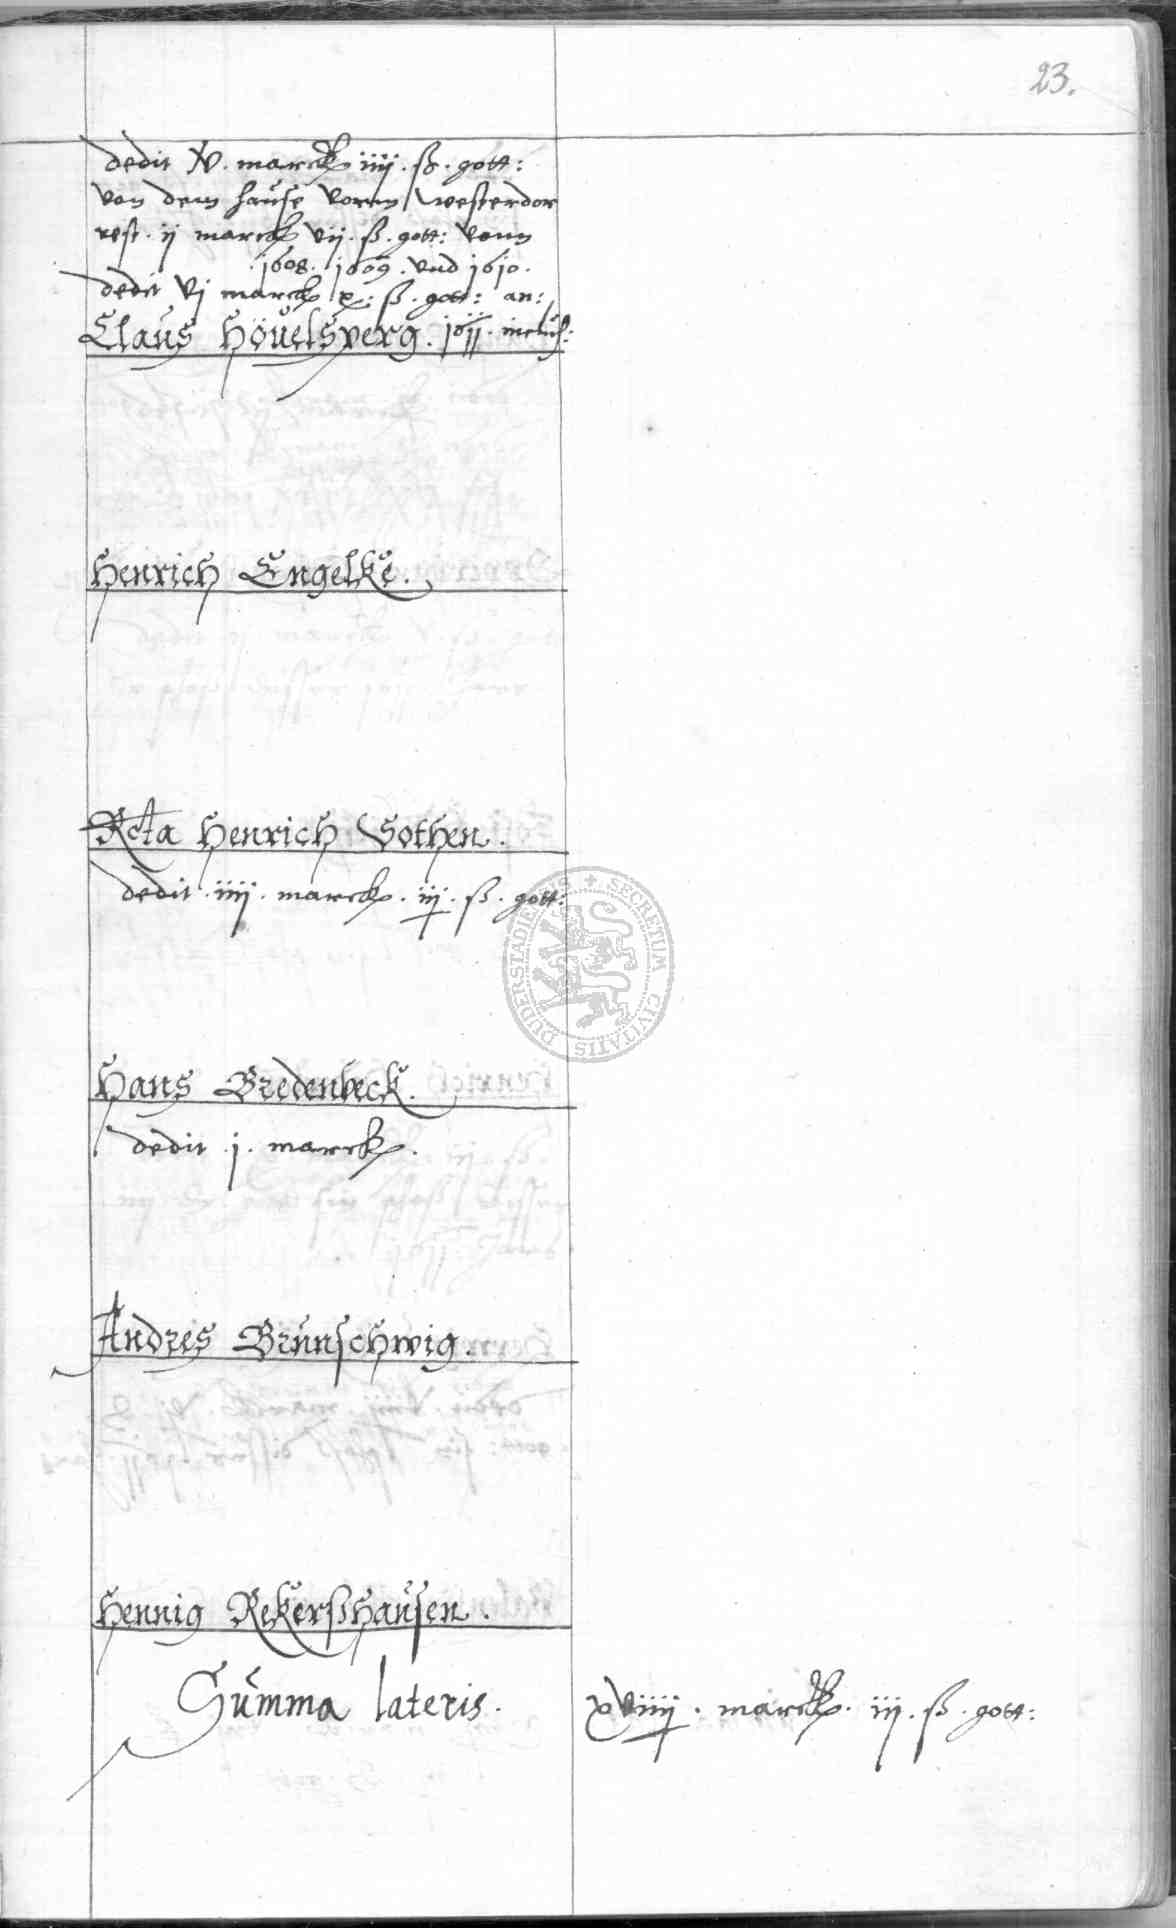 23.
dedit v. marck iiij. ß. gott:
von dem hause vorm Westerdor
rest. ij marck vij. ß. gott: vonn
1608. 1609. vnd 1610.
dedit vj marck x. ß. gott: an:
Claus Höuelsperg. 1611. inclus:
Henrich Engelke.
Rcta Henrich Sothen.
dedit. iiij. marck. iij. ß. gott:
Hans Bredenbeck.
dedit. j. marck.
Andres Brunschwig.
Hennig Rekerßhausen.
Summa lateris. xviiij. marck. iij. ß. gott:
SECRETUM CIVITATIS DUDERSTADIENSIS